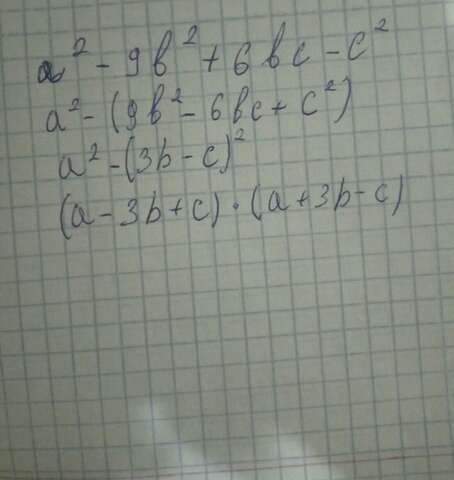 a² - 9b² + 6bc - c²
a² - (9b² - 6bc + c²)
a² - (3b - c)²
(a - 3b + c) · (a + 3b - c)